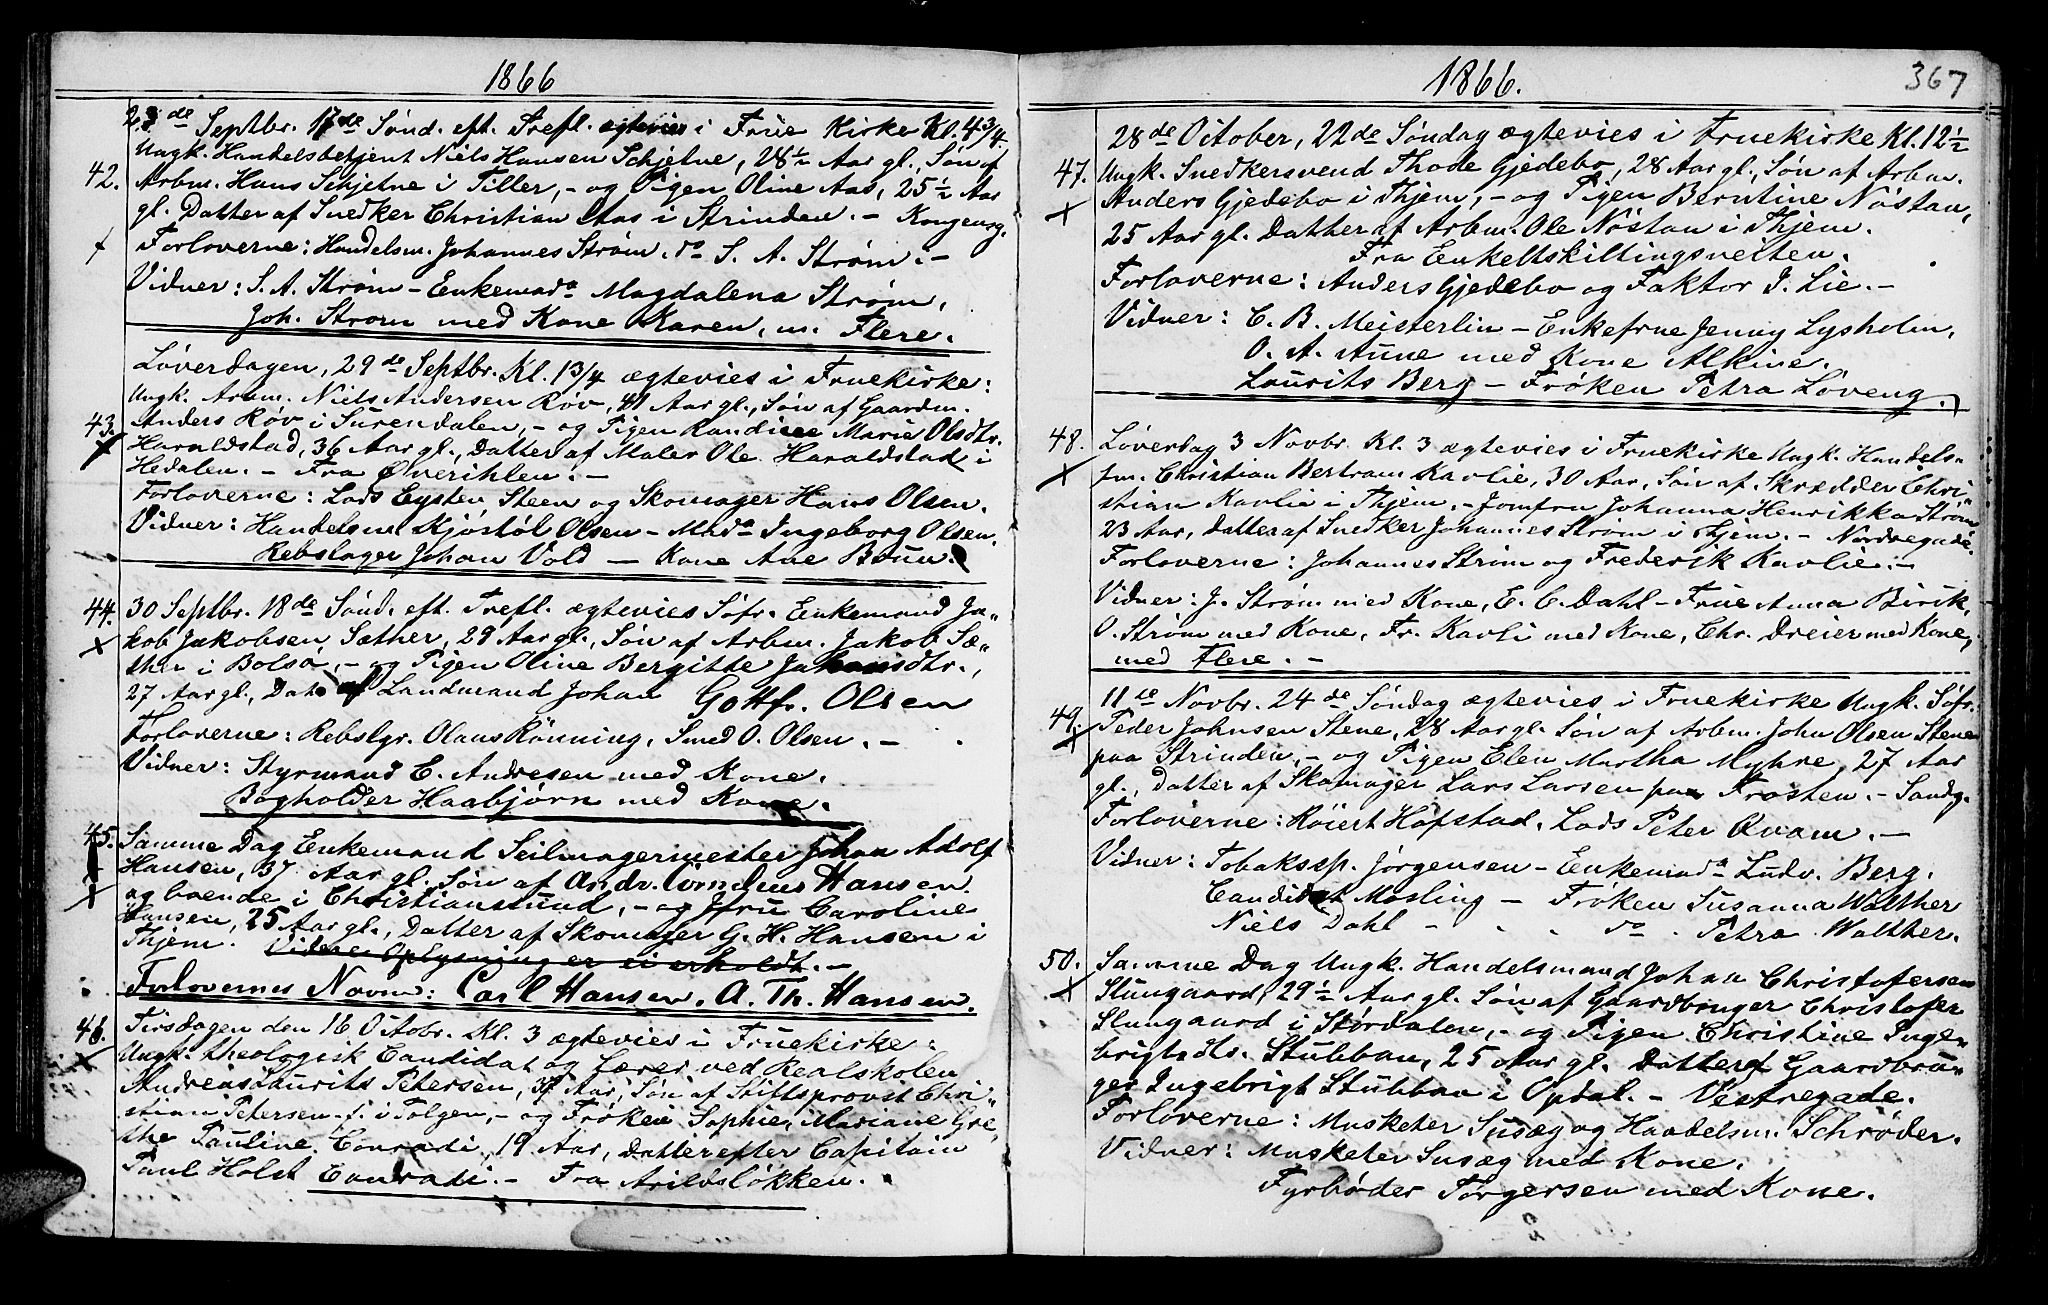 1866
23de Septbr. 17de Sönd. eft. Trefl. ægtevies i Frue Kirke Kl. 4 3/4.
42. Ungk. Handelsbetjent Niels Hansen Schjetne, 28 1/2 Aar gl., Søn af
Arbm. Hans Schjetne i Tiller, - og Pigen Oline Aas, 25 1/2 Aar
gl. Datter af Snedker Christian Aas i Strinden. - Kongensg.
Forloverne: Handelsm. Johannes Strøm. do S. A. Strøm. -
Vidner: S. A. Strøm - Enkemada Magdalena Strøm,
Joh. Strøm med Kone Karen, m. Flere.
Løverdagen, 29de Septbr. Kl. 1 3/4 ægtevies i Fruekirke:
43. Ungk. Arbm. Niels Andersen Røv, 41 Aar gl., Søn af Gaardm.
Anders Røv i Surendalen, - og Pigen Randine Marie Olsdtr.
Haraldstad, 36 Aar gl., Datter af Maler Ole Haraldstad i
Hedalen. - Fra Øverihlen. -
Forloverne: Lods Eysten Steen og Skomager Hans Olsen.
Vidner: Handelsm. Kjöstöl Olsen - Mada Ingeborg Olsen.
Rebslager Johan Vold - Kone Ane Bruun.
44. 30 Septbr. 18de Sönd. eft. Trefl. ægtevies Söfr. Enkemand Ja-
kob Jakobsen Sæther, 29 Aar gl., Søn af Arbm. Jakob Sæ-
ther i Bolsø, - og Pigen Oline Bergitte Johansdtr.,
27 Aar gl., Dat. af Landmand Johan Gottfr. Olsen
Forloverne: Rebslgr. Olaus Rönning, Smed O. Olsen. -
Vidner: Styrmand E. Andresen med Kone.
Bogholder Haabjörn med Kone.
45. Samme Dag Enkemand Seilmagermester Johan Adolf
Hansen, 37 Aar gl. Søn af Andr. Cornelius Hansen
og boende i Christiansund, - og Jfru Caroline
Hansen, 25 Aar gl., Datter af Skomager G. H. Hansen i
Thjem. Videre Oplysning er ei erholdt. -
Forlovernes Navne: Carl Hansen. A. Th. Hansen.
46. Tirsdagen den 16 Octobr. Kl. 3 ægtevies i Fruekirke:
Ungk. theologisk Candidat og Lærer ved Realskolen
Andreas Laurits Petersen, Aar, Søn af Stiftsprovst Chri-
stian Petersen i Tolgen, - og Frøken Sophie Mariane Gre-
the Pauline Conradi, 19 Aar, Datter efter Capitain
Paul Holst Conradi. - Fra Arildsløkken.
1866. 367
28de October, 22de Søndag ægtevies i Fruekirke Kl. 12 1/2
47. Ungk. Snedkersvend Thode Gjedebo, 28 Aar gl., Søn af Arbm.
Anders Gjedebo i Thjem, - og Pigen Berntine Nöstan,
25 Aar gl. Datter af Arbm. Ole Nöstan i Thjem.
Fra Enkeltskillingsveiten.
Forloverne: Anders Gjedebo og Faktor J. Lie. -
Vidner: C. B. Meisterlin - Enkefrue Jenny Lysholm,
O. A. Aune med Kone Alkine.
Laurits Berg - Frøken Petra Løveng.
48. Løverdag 3 Novbr. Kl. 3 ægtevies i Fruekirke Ungk. Handels-
fm. Christian Bertram Kavlie, 30 Aar, Søn af Skrædder Chri-
stian Kavlie i Thjem. - Jomfru Johanna Henrikka Strøm
23 Aar, Datter af Snedker Johannes Strøm i Thjem. - Nordregade.
Forloverne: Johannes Strøm og Frederik Kavlie. -
Vidner: J. Strøm med Kone, E. C. Dahl - Frue Anna Birik,
O. Strøm med Kone, Fr. Kavli med Kone, Chr. Dreier med Kone,
med Flere. -
11te Novbr. 24de Søndag ægtevies i Fruekirke Ungk. Söfr.
49. Peder Johnsen Stene, 28 Aar gl. Søn af Arbm. John Olsen Stene
paa Strinden, - og Pigen Elen Martha Myhre, 27 Aar
gl., Datter af Skomager Lars Larsen paa Frosten. - Sandg.
Forloverne: Röiert Hofstad, Lods Peter Qvam. -
Vidner: Tobakssp. Jørgensen - Enkemada Ludv. Berg.
Candidat Mosling - Frøken Susanna Walther
Niels Dahl - - - do - Petra Walther.
50. Samme Dag Ungk. Handelsmand Johan Christofersen
Slungaard, 29 1/2 Aar gl. Søn af Gaardbruger Christofer
Slungaard i Størdalen, - og Pigen Christine Inge-
brigtsdtr. Stubban, 25 Aar gl. Datter af Gaardbru-
ger Ingebrigt Stubban i Opdal. - Vestregade.
Forloverne: Musketer Susæg og Handelsm. Schrøder.
Vidner: Musketer Susæg med Kone.
Fyrbøder Torgersen med Kone.